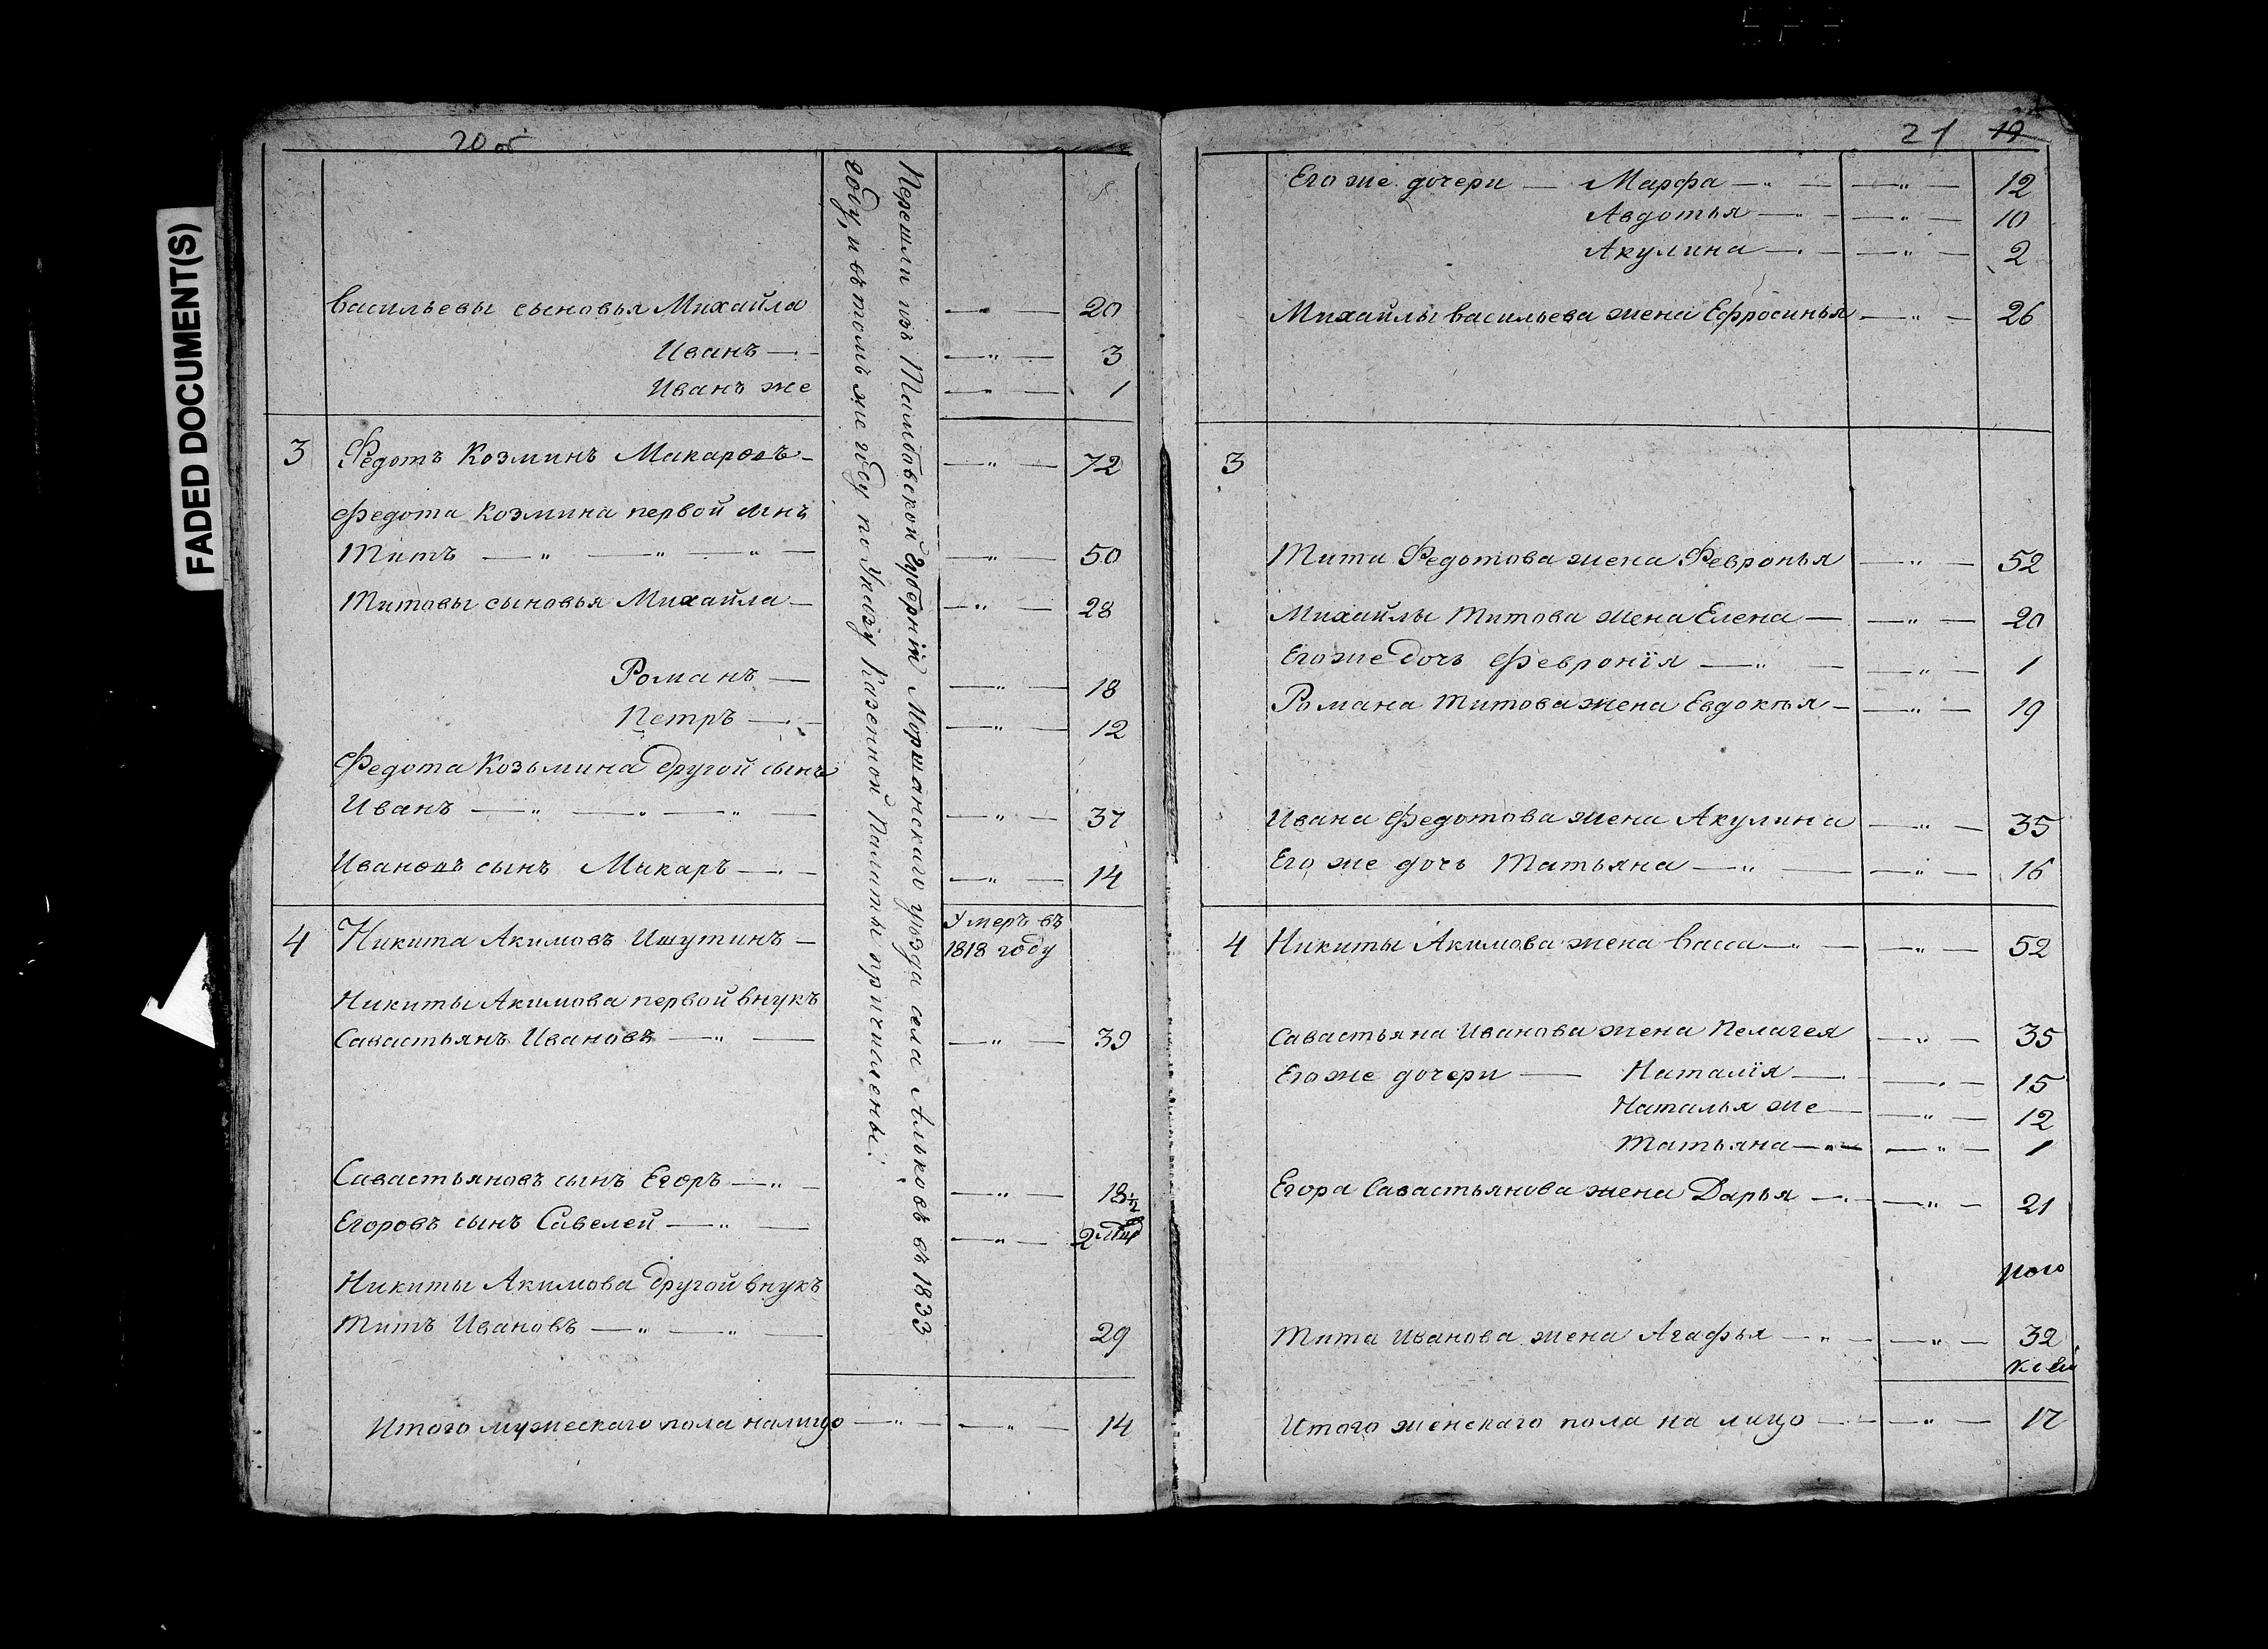 FADED DOCUMENT(S)
20 об
Васильевы сыновья Михайла — " — 20
Иванъ — " — 3
Иванъ же — " — 1
3 Федотъ Козминъ Макаровъ — " — 72
Федота Козмина первой сынъ
Титъ — " — " — " — 50
Титовы сыновья Михаила — " — 28
Романъ — " — 18
Петръ — " — 12
Федота Козьмина другой сынъ
Иванъ — " — " — " — 37
Ивановъ сынъ Макаръ — " — 14
4 Никита Акимовъ Ишутинъ — Умеръ въ
1818 году
Никиты Акимова первой внукъ
Савастьянъ Ивановъ — " — 39
Савастьяновъ сынъ Егоръ — " — 18 1/2
Егоровъ сынъ Савелей — " — 2
Никиты Акимова другой внукъ
Титъ Ивановъ — " — " — 29
Итого мужескаго пола налицо — " — " — 14
Перешли изъ Тамбовской Губерніи Моршанскаго уѣзда села Альковъ въ 1833
году, и въ томъ же году по Указу Казенной Палаты причислены.
21 19
Его же дочери — Марфа — " — 12
Авдотья — " — 10
Акулина — " — 2
Михайлы Васильева жена Ефросинья — " — 26
3
Тита Федотова жена Февронья — " — 52
Михайлы Титова жена Елена — " — 20
Его же дочь Февронія — " — 1
Романа Титова жена Евдокья — " — 19
Ивана Федотова жена Акулина — " — 35
Его же дочь Татьяна — " — 16
4 Никиты Акимова жена Васса — " — 52
Савастьяна Иванова жена Пелагея — " — 35
Его же дочери — Наталія — " — 15
Наталья же — " — 12
Татьяна — " — 1
Егора Савастьянова жена Дарья — " — 21
Тита Иванова жена Агафья — " — 32
Итого женскаго пола на лицо — " — 17